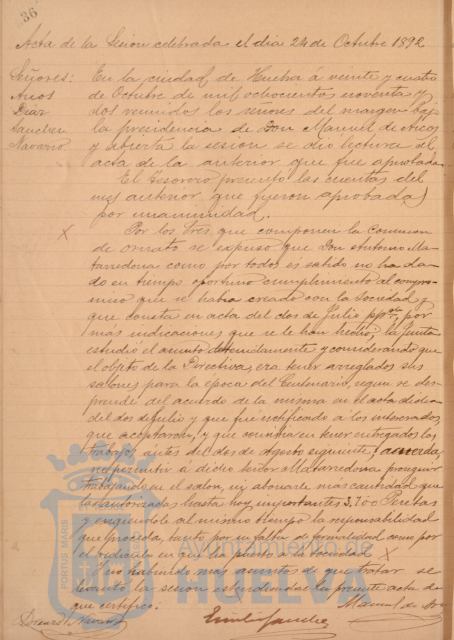 36
Acta de la Sesion celebrada el dia 24 de Octubre 1892
Señores:
Arcos
Diaz
Sanchez
Navarro
En la ciudad de Huelva á veinte y cuatro
de Octubre de mil ochocientos noventa y
dos reunidos los señores del margen bajo
la presidencia de Don Manuel de Arcos
y abierta la sesion se dio lectura al
acta de la anterior que fue aprobada
El Tesorero presentó las cuentas del
mes anterior que fueron aprobadas
por unanimidad.
Por los tres que componen la Comision
de ornato se expuso que Don Antonio Ma-
tarredona como por todos es sabido no ha da-
do en tiempo oportuno cumplimiento al compro-
miso que se habia creado con la Sociedad y
que consta en acta del dos de Julio por
más indicaciones que se le han hecho; la Junta
estudió el asunto detenidamente y considerando que
el objeto de la Directiva, era tener arreglados sus
salones para la epoca del Centenario, segun se des-
prende del acuerdo de la misma en el acta dicha
del dos de Julio y que fué notificado a los interesados,
que aceptaron, y que consistia en tener entregados los
trabajos antes del dos de Agosto siguiente; acuerda,
no permitir á dicho señor Matarredona proseguir
trabajando en el salon, ni abonarle más cantidad que
las autorizadas hasta hoy importantes 3.700 Pesetas
y exigiendole al mismo tiempo la responsabilidad
que proceda, tanto por su falta de formalidad como por
el ridiculo en que ha puesto a la Sociedad
Y no habiendo más asuntos de que tratar se
levantó la sesion extendiendose la presente acta de
que certifico.
Manuel de Arcos
Emilio Sanchez
Navarro
PORTUS MARIS
Ayuntamiento de
HUELVA